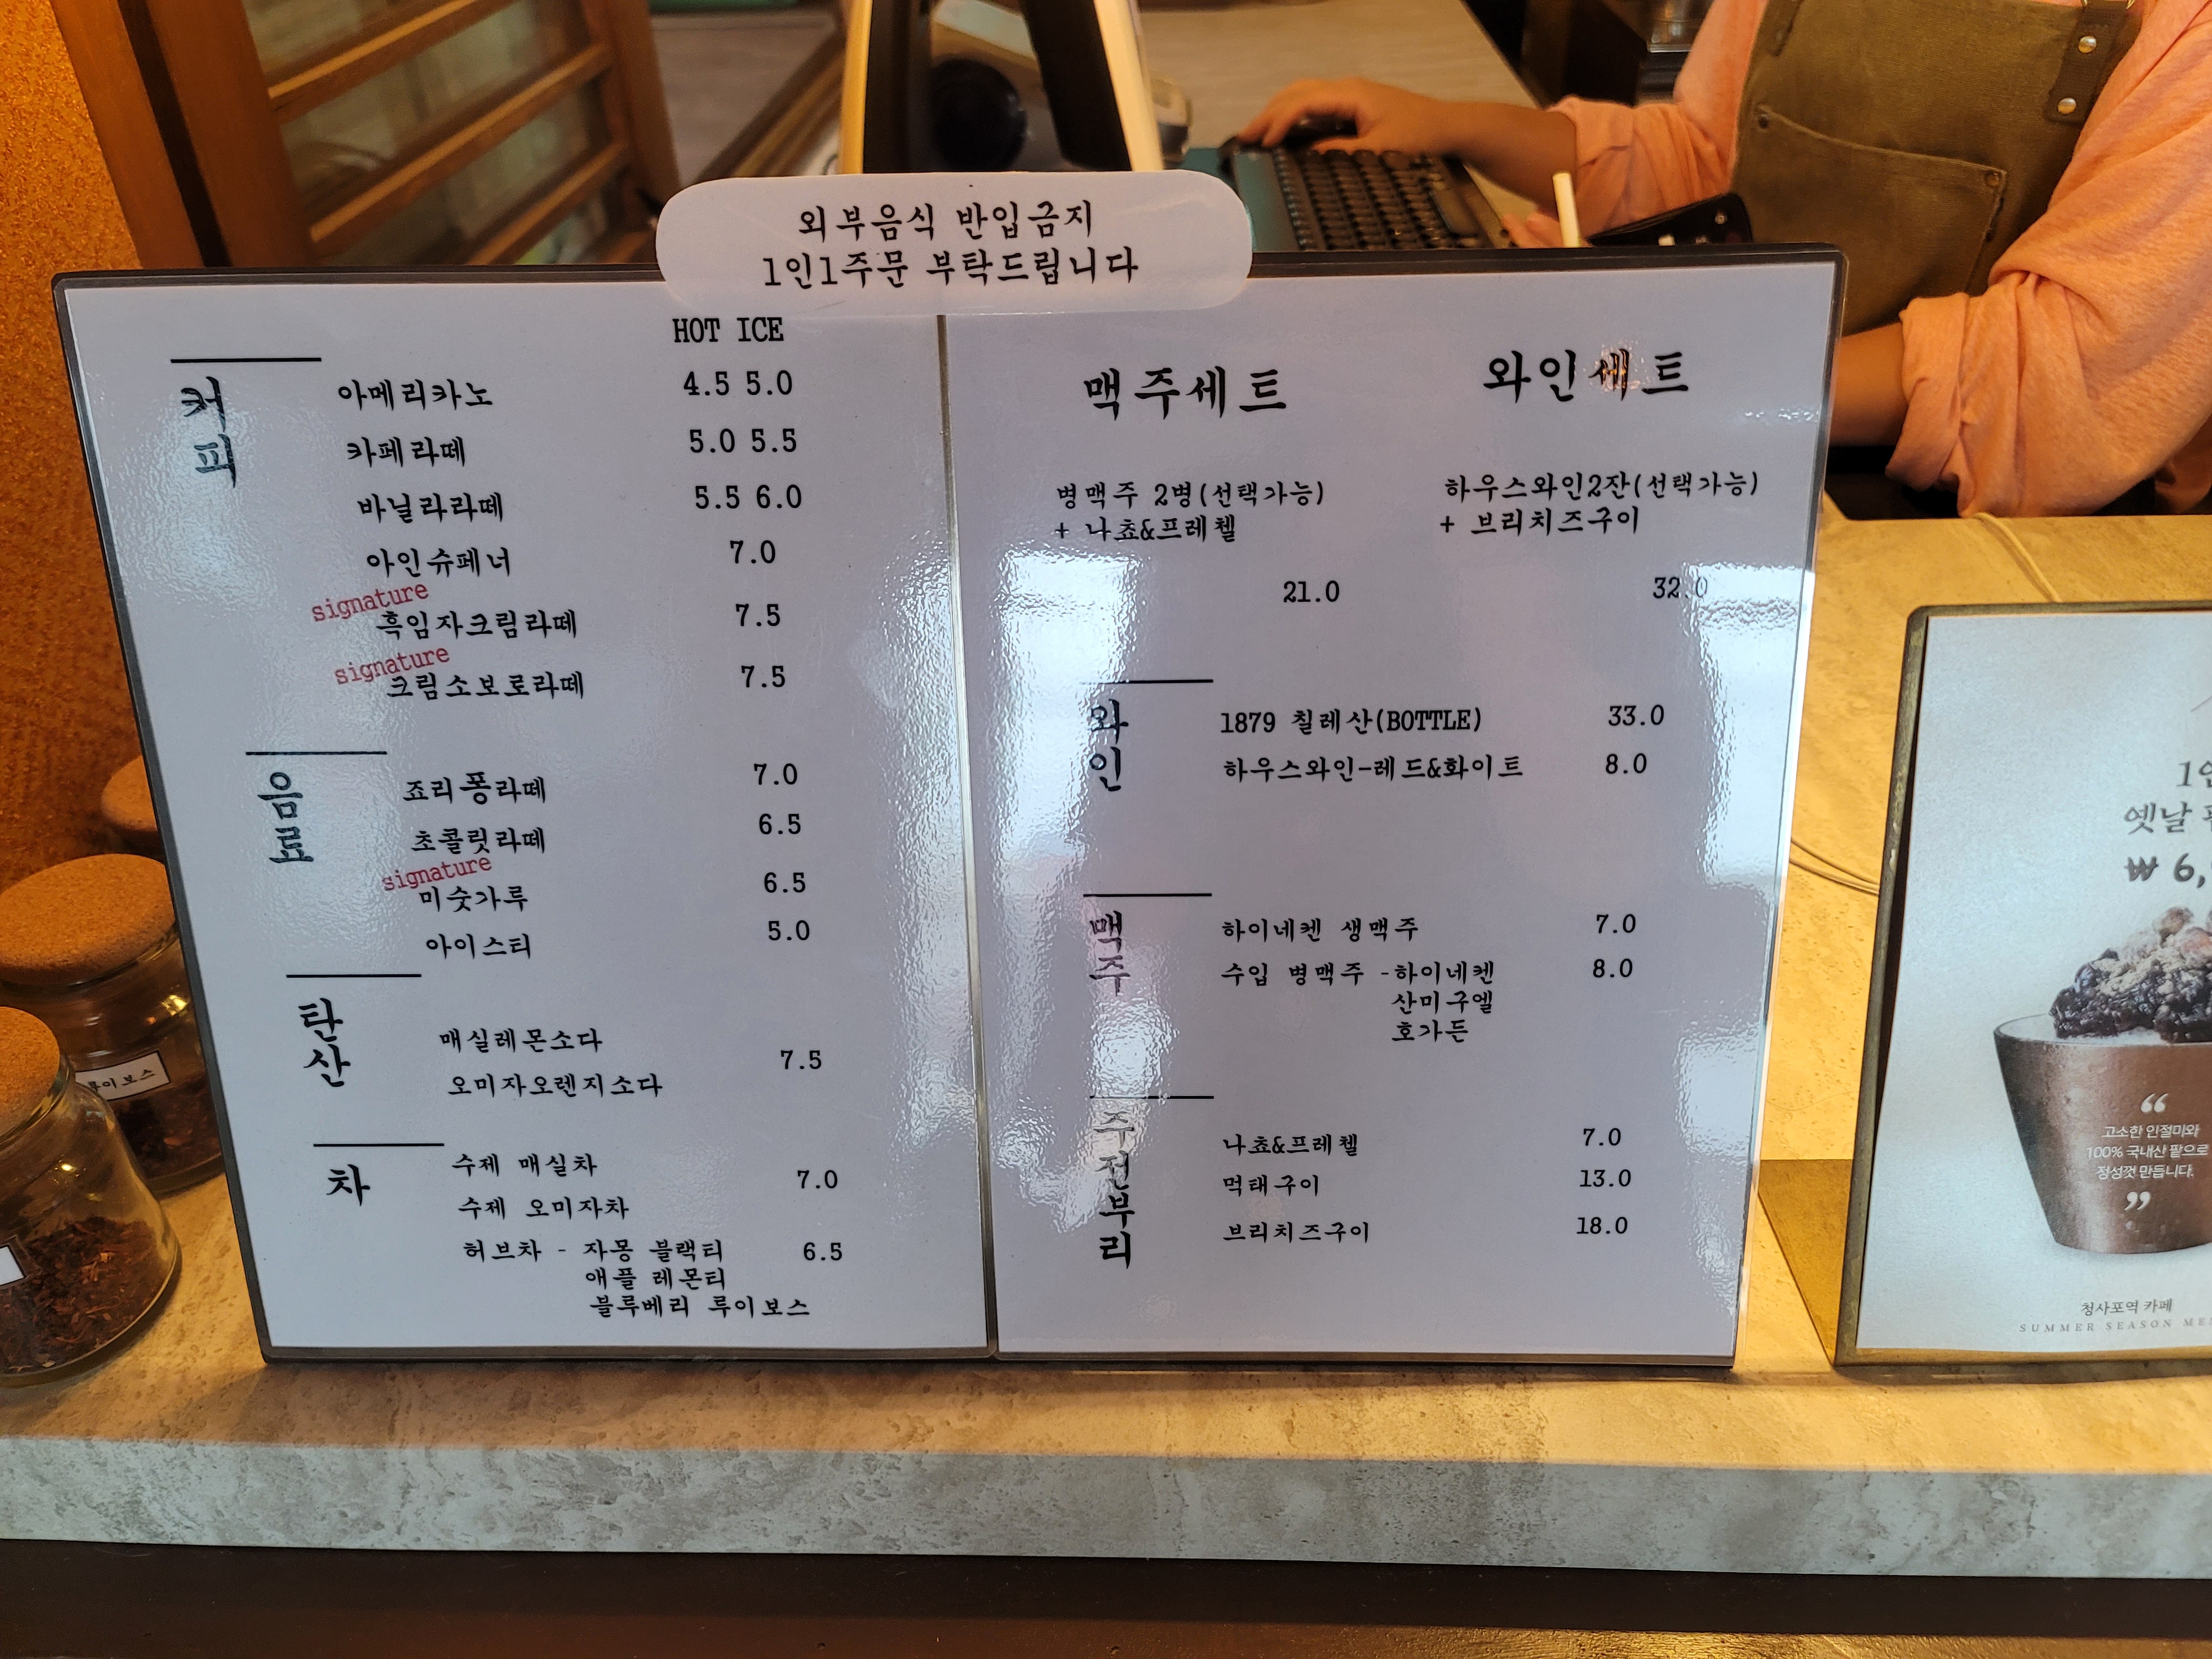 외부음식 반입금지
1인1주문 부탁드립니다
HOT ICE
커피
아메리카노 4.5 5.0
카페라떼 5.0 5.5
바닐라라떼 5.5 6.0
아인슈페너 7.0
signature
흑임자크림라떼 7.5
signature
크림소보로라떼 7.5
음료
죠리퐁라떼 7.0
초콜릿라떼 6.5
signature
미숫가루 6.5
아이스티 5.0
탄산
매실레몬소다
7.5
오미자오렌지소다
차
수제 매실차
7.0
수제 오미자차
허브차 - 자몽 블랙티 6.5
애플 레몬티
블루베리 루이보스
맥주세트
병맥주 2병(선택가능)
+ 나쵸&프레첼
21.0
와인세트
하우스와인2잔(선택가능)
+ 브리치즈구이
32.0
와인
1879 칠레산(BOTTLE) 33.0
하우스와인-레드&화이트 8.0
맥주
하이네켄 생맥주 7.0
수입 병맥주 -하이네켄 8.0
산미구엘
호가든
주전부리
나쵸&프레첼 7.0
먹태구이 13.0
브리치즈구이 18.0
루이보스
옛날
₩ 6,
“
고소한 인절미와
100% 국내산 팥으로
정성껏 만듭니다.
”
청사포역 카페
SUMMER SEASON